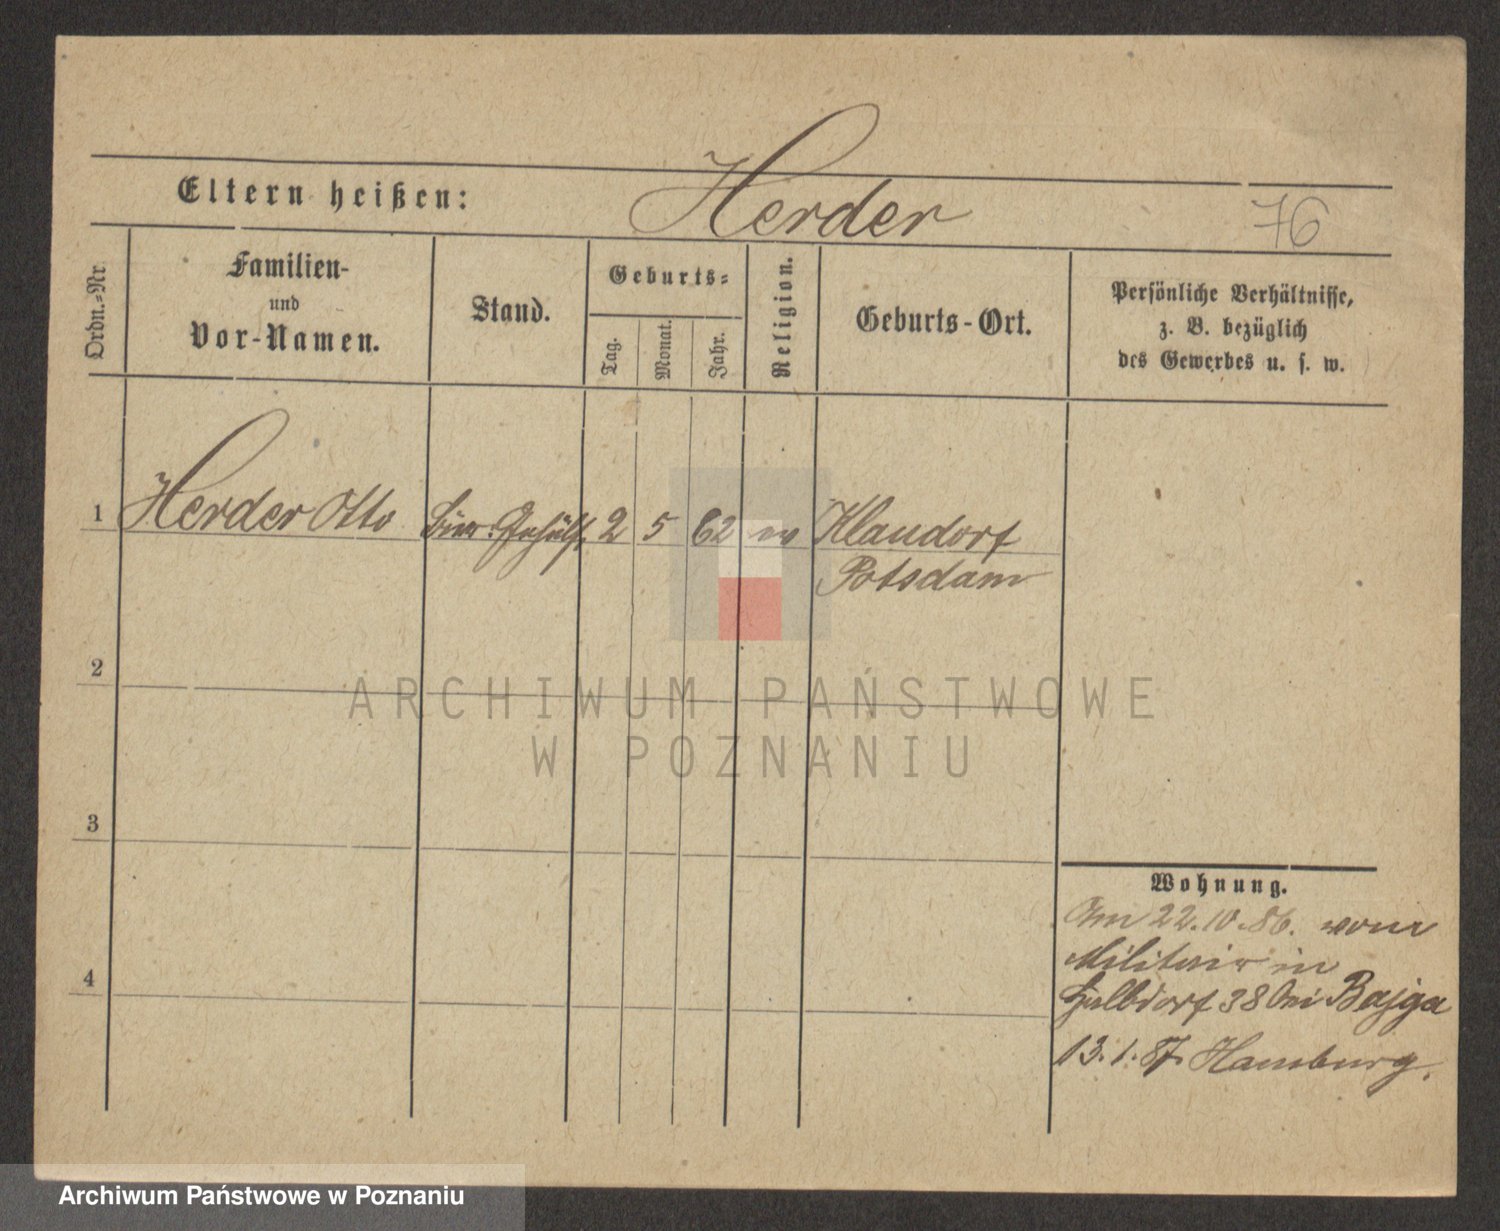 Eltern heißen: Herder
76
Ordn.-Nr.
Familien-
und
Vor-Namen.
Stand.
Geburts-
Tag.
Monat.
Jahr.
Religion.
Geburts-Ort.
Persönliche Verhältnisse,
z. B. bezüglich
des Gewerbes u. s. w.
1 Herder Otto Bür. Gehülf. 2 5 62 ev Klandorf
Potsdam
2
ARCHIWUM PAŃSTWOWE
W POZNANIU
3
Wohnung.
Am 22.10.86. vom
Militair in
Halbdorf 38 bei Bajga
4
13.1.87. Hamburg.
Archiwum Państwowe w Poznaniu